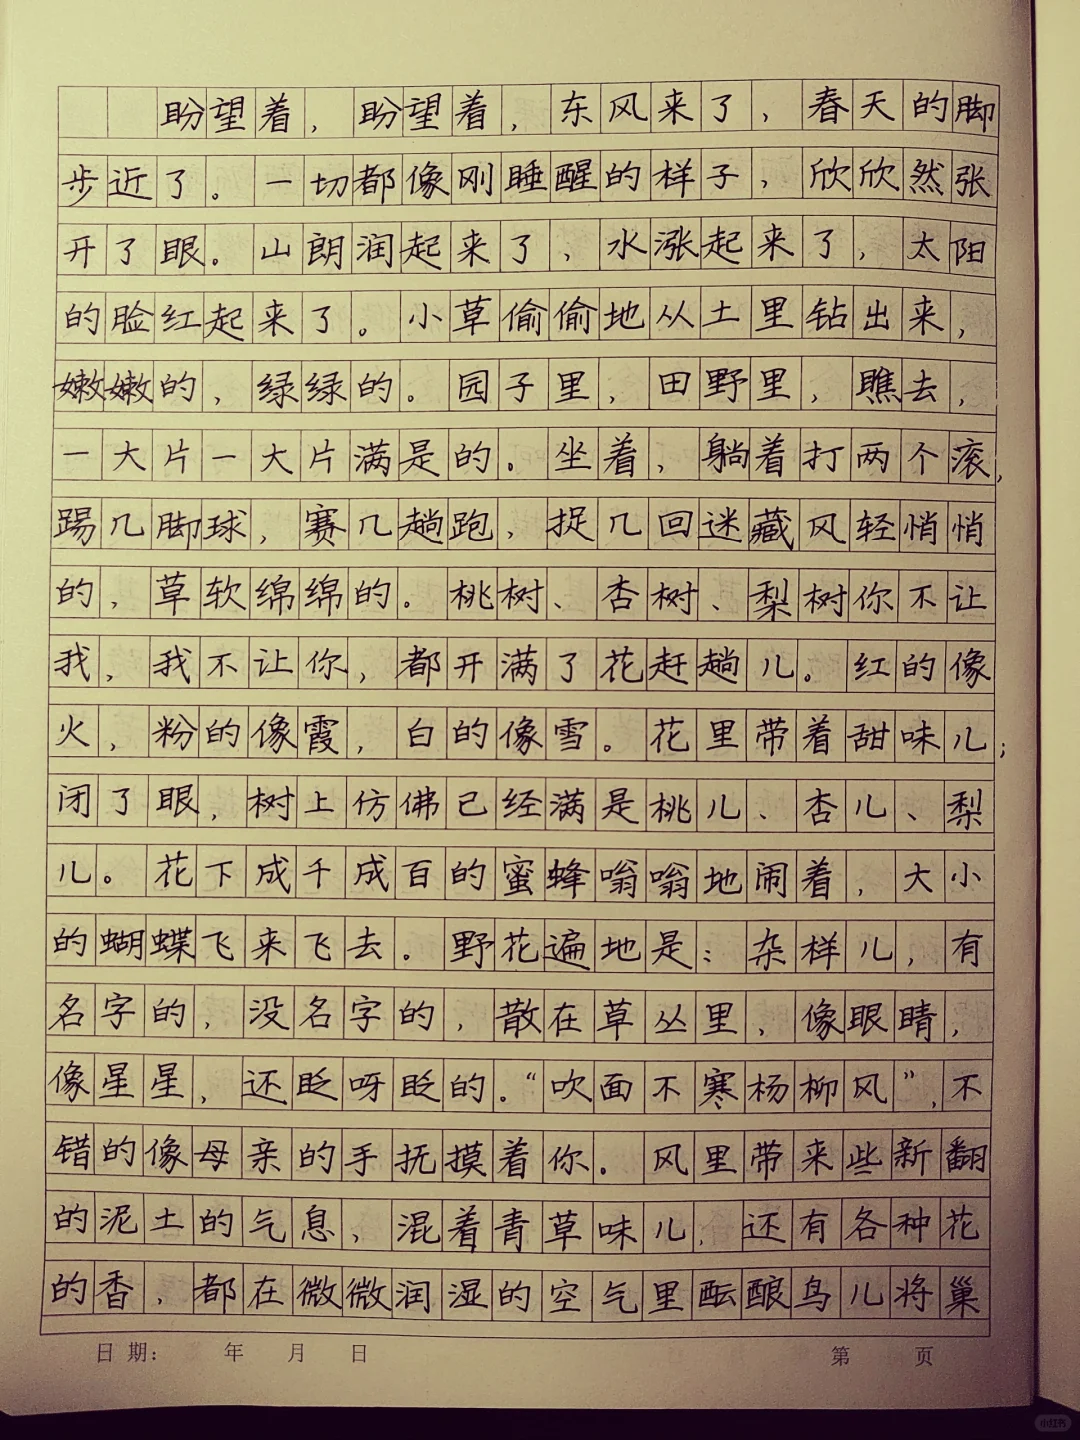 盼望着，盼望着，东风来了，春天的脚
步近了。一切都像刚睡醒的样子，欣欣然张
开了眼。山朗润起来了，水涨起来了，太阳
的脸红起来了。小草偷偷地从土里钻出来，
嫩嫩的，绿绿的。园子里，田野里，瞧去，
一大片一大片满是的。坐着，躺着打两个滚，
踢几脚球，赛几趟跑，捉几回迷藏风轻悄悄
的，草软绵绵的。桃树、杏树、梨树你不让
我，我不让你，都开满了花赶趟儿。红的像
火，粉的像霞，白的像雪。花里带着甜味儿；
闭了眼，树上仿佛已经满是桃儿、杏儿、梨
儿。花下成千成百的蜜蜂嗡嗡地闹着，大小
的蝴蝶飞来飞去。野花遍地是：杂样儿，有
名字的，没名字的，散在草丛里，像眼睛，
像星星，还眨呀眨的。“吹面不寒杨柳风”，不
错的像母亲的手抚摸着你。风里带来些新翻
的泥土的气息，混着青草味儿，还有各种花
的香，都在微微润湿的空气里酝酿鸟儿将巢
日期： 年 月 日 第 页
小红书